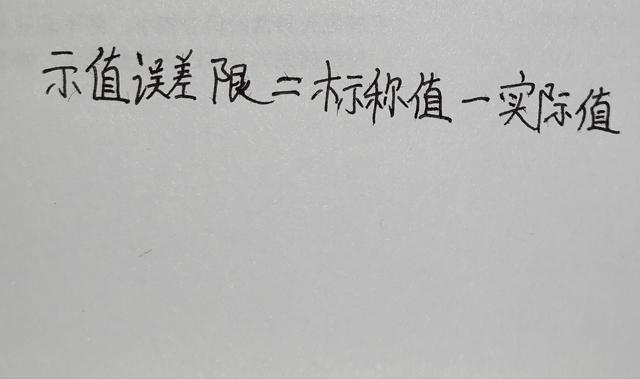 示值误差限=标称值-实际值